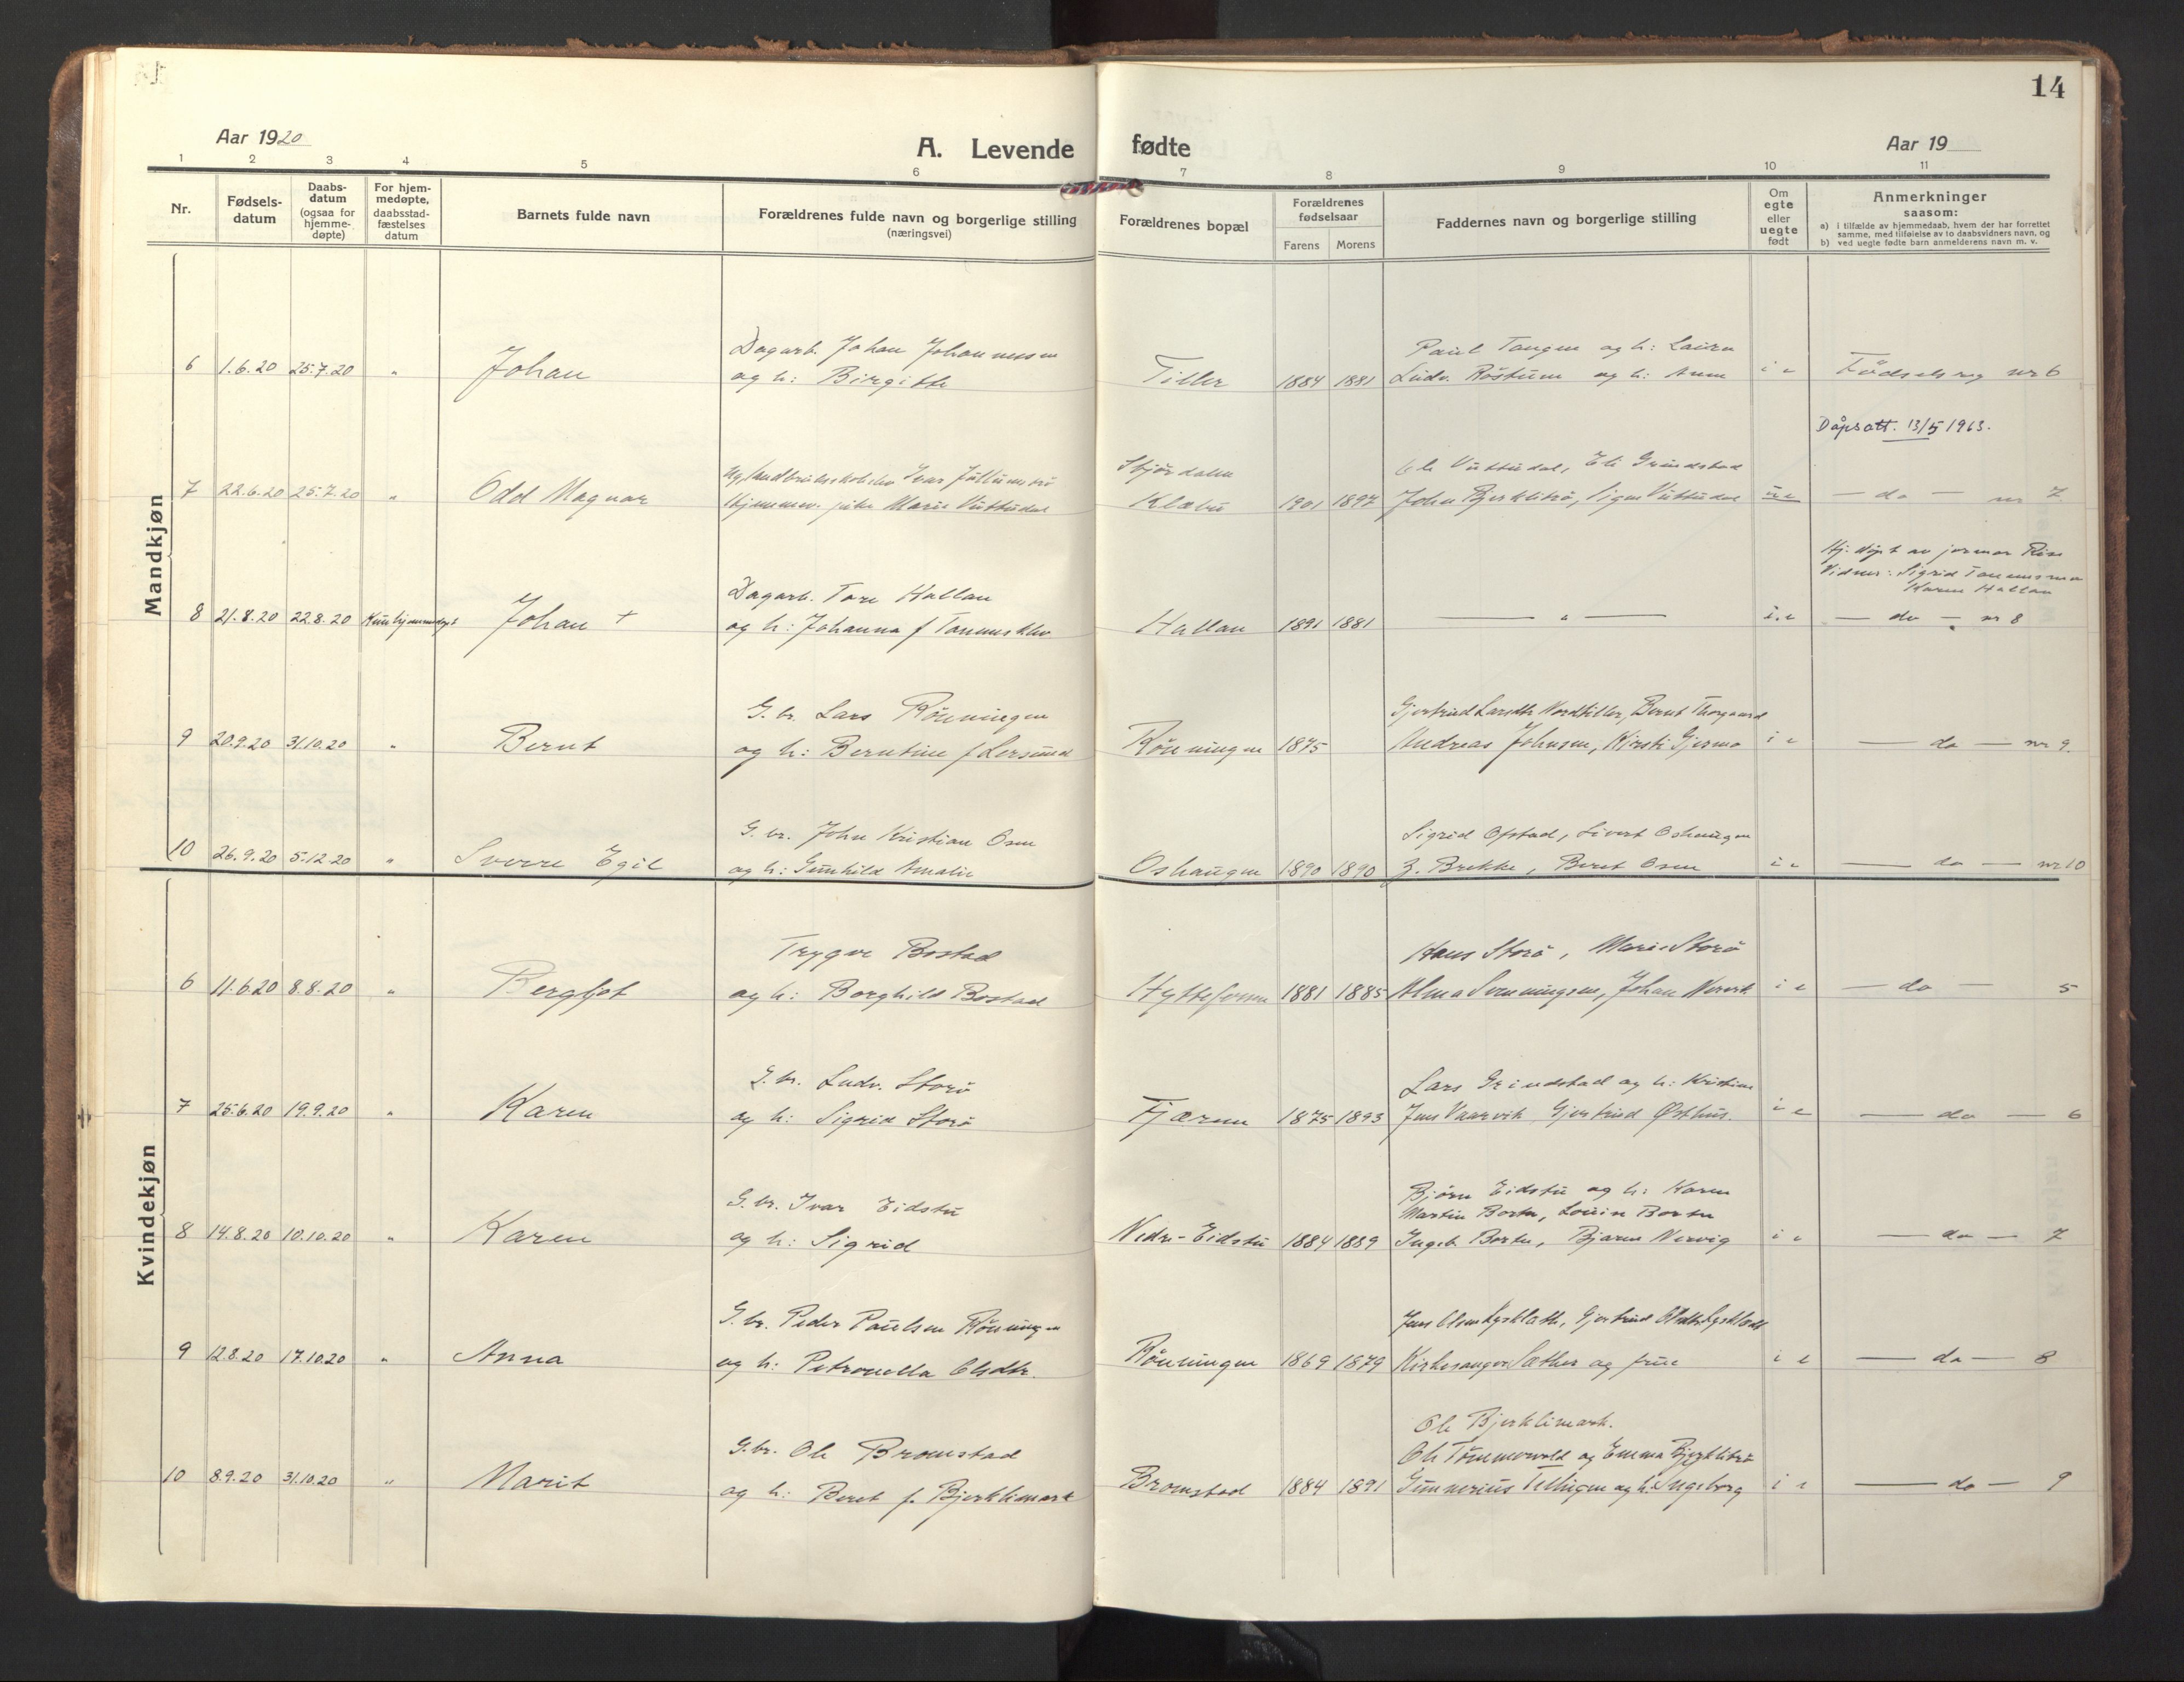 14
Aar 1920
A. Levende fødte
Aar 19
1 2 3 4 5 6 7 8 9 10 11
Nr.
Fødsels-
datum
Daabs-
datum
(ogsaa for
hjemme-
døpte)
For hjem-
medøpte,
daabsstad-
fæstelses
datum
Barnets fulde navn
Forældrenes fulde navn og borgerlige stilling
(næringsvei)
Forældrenes bopæl
Forældrenes
fødselsaar
Farens Morens
Faddernes navn og borgerlige stilling
Om
egte
eller
uegte
født
Anmerkninger
saasom:
a) i tilfælde av hjemmedaab, hvem der har forrettet
samme, med tilføielse av to daabsvidners navn, og
b) ved uegte fødte barn anmelderens navn m. v.
Mandkjøn
Dagarb. Johan Johannesen
Paul Tangen og h: Laura
6 1.6.20 25.7.20 " Johan og h: Birgitte Tiller 1884 1881 Ludv. Röstum og h: Anne i e Födselsreg nr 6
Dåpsatt. 13/5 1963.
Ivar
Stjørdalen
Ole Vuttudal, Eli Grindstad
7 22.6.20 25.7.20 " Odd Magnar Marie Vuttudal Klæbu 1901 1897 John Bjerklitrö, Vuttudal u e — do — nr 7
Hj. døpt av jormor Rise
Vidner: Sigrid
Karen Hallan
Dagarb. Tore Hallan
8 21.8.20 22.8.20 Kun hjemmedøpt Johan + og h: Johanna f Hallan 1891 1881 — " — i.e — do — nr 8
G. br. Lars Rönningen
Gjertrud Larsdtr Nordtiller, Bernt
9 20.9.20 31.10.20 " Bernt og h: Berntine f Lersund Rönningen 1875 Andreas Johnsen, Kirsti Gjermo i e — do — nr 9.
G. br. John Kristian Osen
Sigrid Ofstad, Sivert Oshaugen
10 26.9.20 5.12.20 " Sverre Egil og h: Gunhild Amalie Oshaugen 1890 1890 Z. Brekke, Beret Osen i e — do — nr 10
Kvindekjøn
Trygve Bostad
Hans Storö, Marie Storö
6 11.6.20 8.8.20 " Bergljot og h: Borghild Bostad Hyttefossen 1881 1885 Alma Svenningsen, Johan Nervik i e — do — 5
G. br. Ludv. Storö
Lars Grindstad og h: Kristine
7 25.6.20 19.9.20 " Karen og h: Sigrid Storö Fjæren 1875 1893 Jens Vaarvik, Gjertrud Østhus. i e — do — 6
G. br. Ivar Eidstu
Bjørn Eidstu og h: Karen
Martin Borten, Louise Borten
8 14.8.20 10.10.20 " Karen og h: Sigrid Nedre-Eidstu 1884 1889 Ingeb. Borten, Bjarne Nervig i e — do — 7
G. br. Peder Paulsen Rönningen
Jens Olsen Lysklætt, Gjertrud Olsdtr. Lysklætt
9 12.8.20 17.10.20 " Anna og h: Petronella Olsdtr. Rönningen 1869 1879 Kirkesanger Sæther og frue i e — do — 8
G. br. Ole Bromstad
Ole Bjerklimark.
Ole Tömmervold og Emma Bjerklitrö
10 8.9.20 31.10.20 " Marit og h: Beret f. Bjerklimark Bromstad 1884 1891 Gunnerius Tellugen og h. Ingeborg i e — do — 9